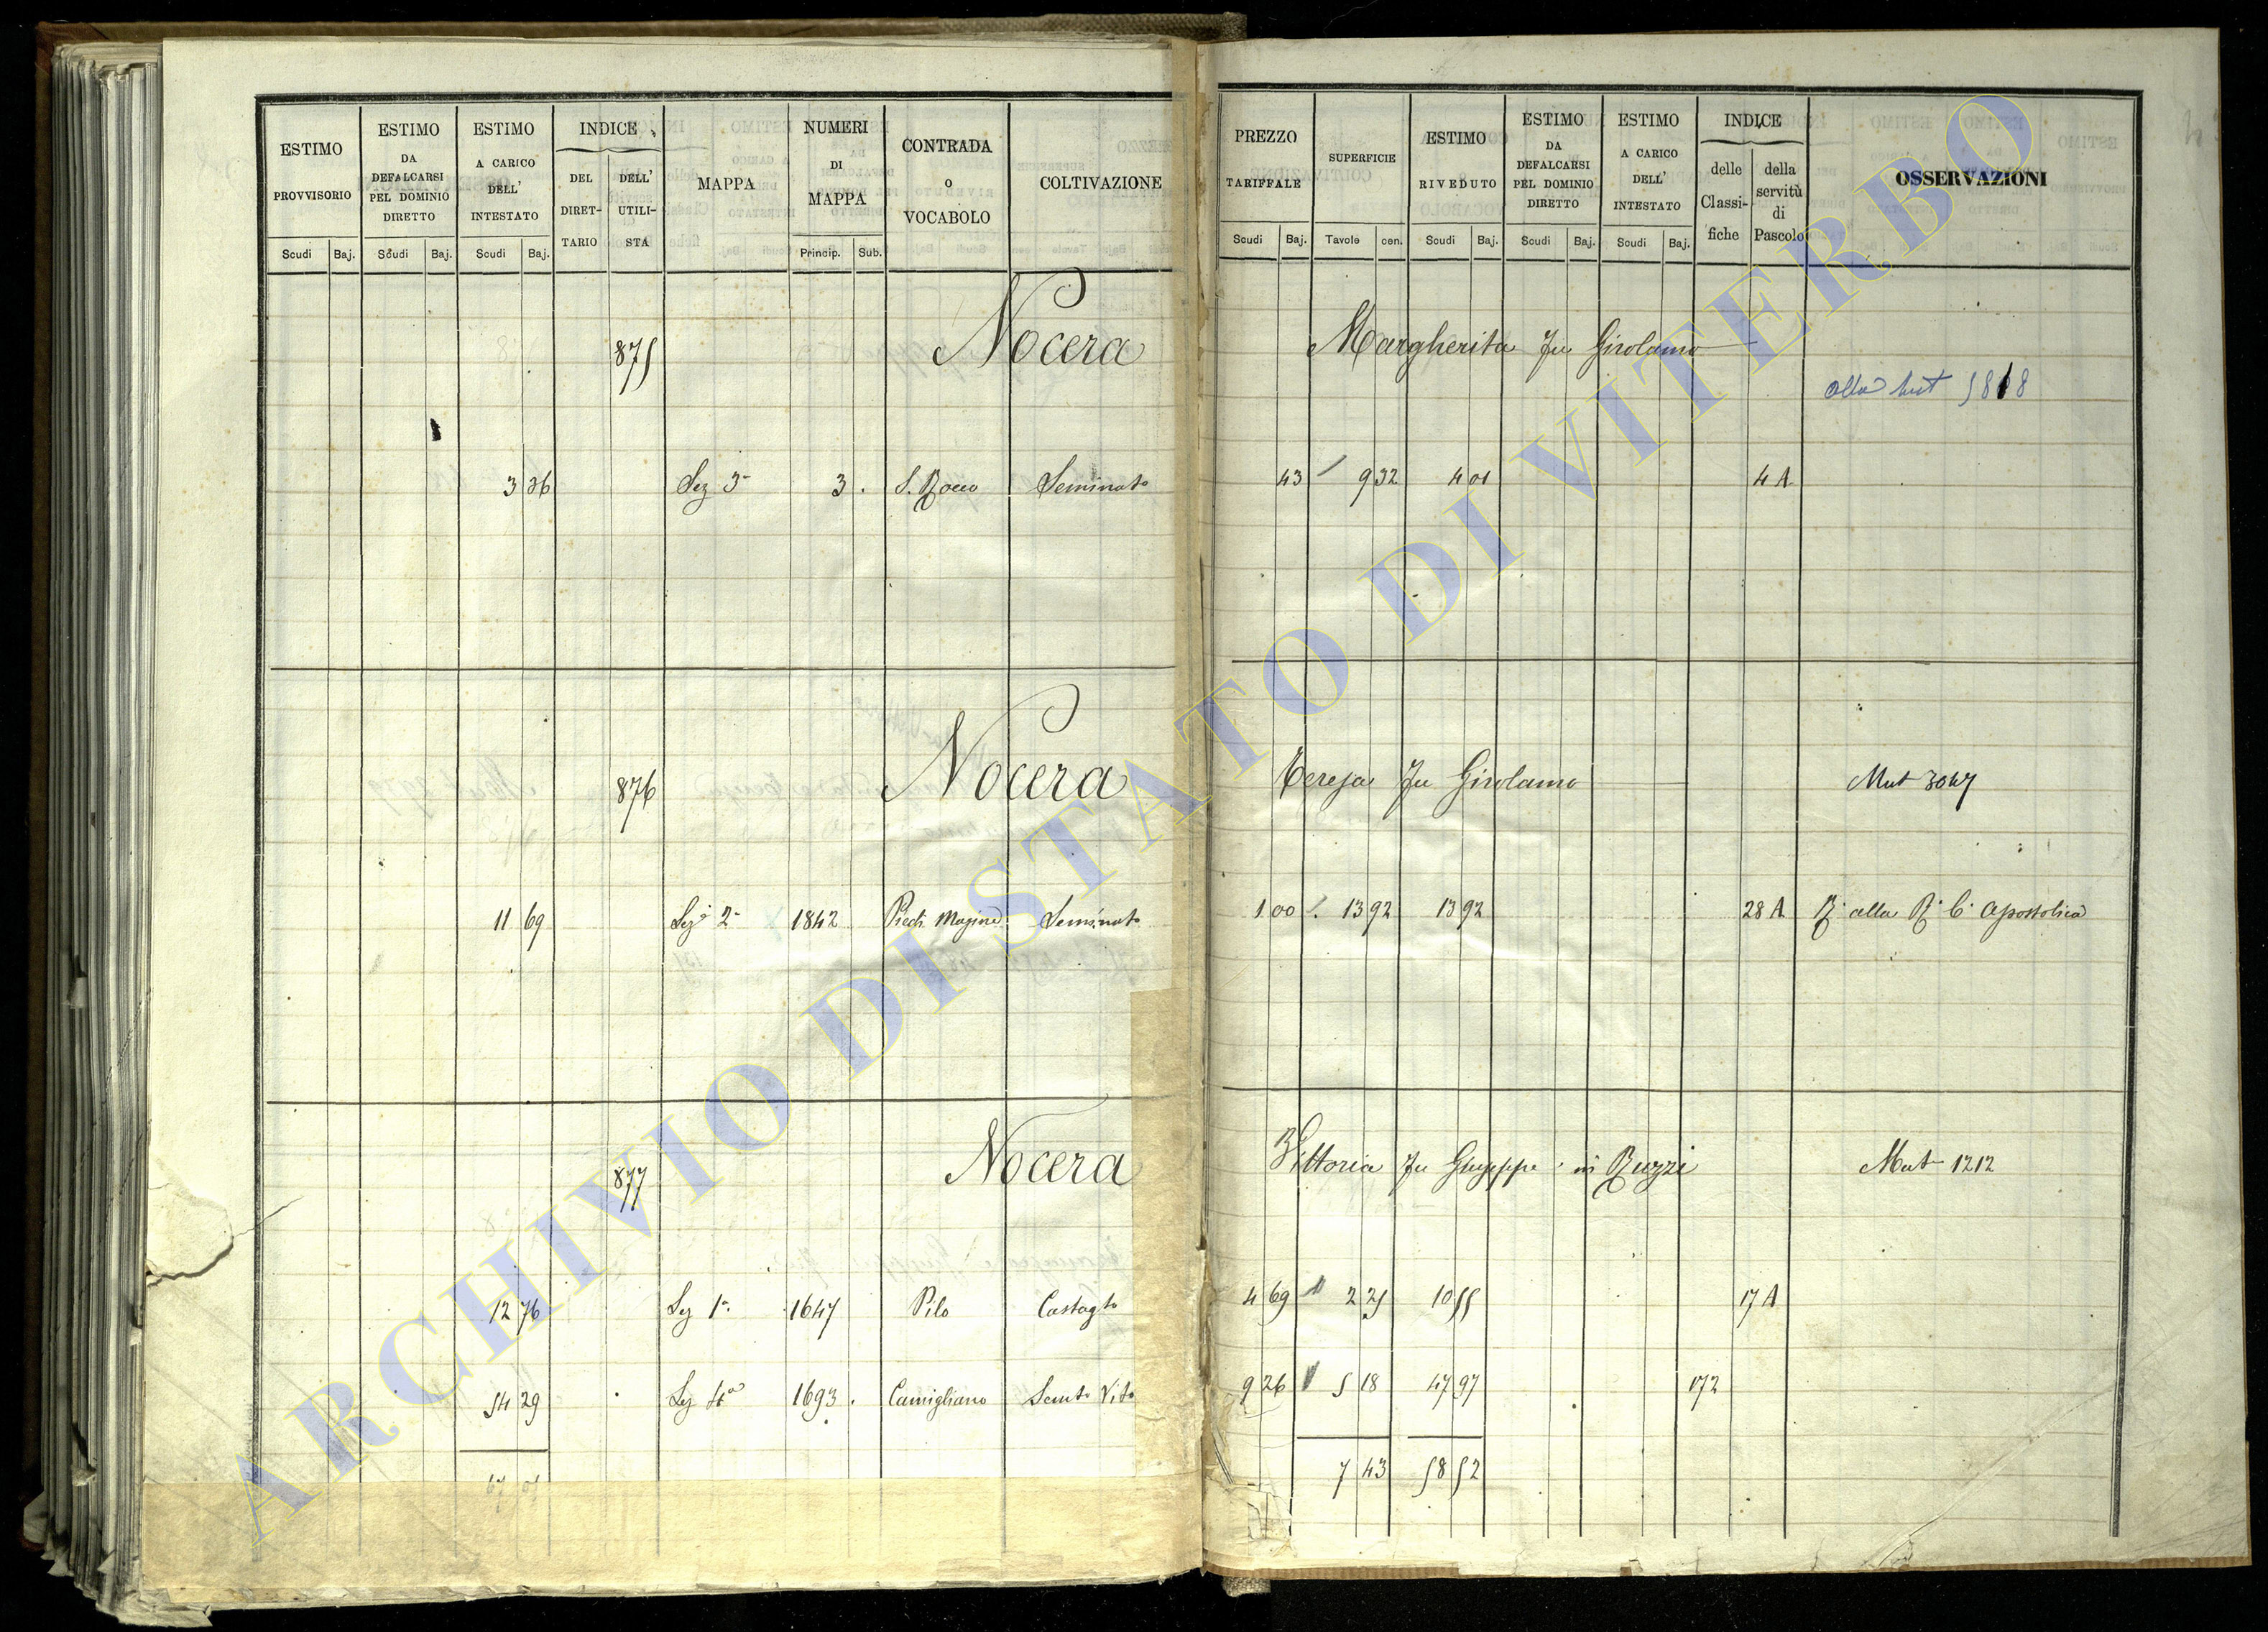 ESTIMO PROVVISORIO Scudi Baj.
ESTIMO DA DEFALCARSI PEL DOMINIO DIRETTO Scudi Baj.
ESTIMO A CARICO DELL' INTESTATO Scudi Baj.
INDICE DEL DIRET-TARIO DELL' UTILI-STA
MAPPA
NUMERI DI MAPPA Princip. Sub.
CONTRADA o VOCABOLO
COLTIVAZIONE
PREZZO TARIFFALE Scudi Baj.
SUPERFICIE Tavole cen.
ESTIMO RIVEDUTO Scudi Baj.
ESTIMO DA DEFALCARSI PEL DOMINIO DIRETTO Scudi Baj.
ESTIMO A CARICO DELL' INTESTATO Scudi Baj.
INDICE delle Classi-fiche della servitù di Pascolo
OSSERVAZIONI
875 Nocera Margherita fu Girolamo
alla mut 5818
3 36 Sez 3ª 3 S. Rocco Seminato 43 9 32 4 01 4 A
876 Nocera Teresa fu Girolamo Mut 3047
11 69 Sez 2ª 1842 Seminato 1 00 13 92 13 92 28 A R. alla R. C. Apostolica
877 Nocera Vittoria fu Giuseppe in Ruzzi Mut 1212
12 76 Sez 1ª 1647 Pilo Castagto 4 69 2 25 10 55 17 A
54 29 Sez 4ª 1693 Camigliano Semto Vito 9 26 5 18 47 97 172
67 05 7 43 58 52
ARCHIVIO DI STATO DI VITERBO